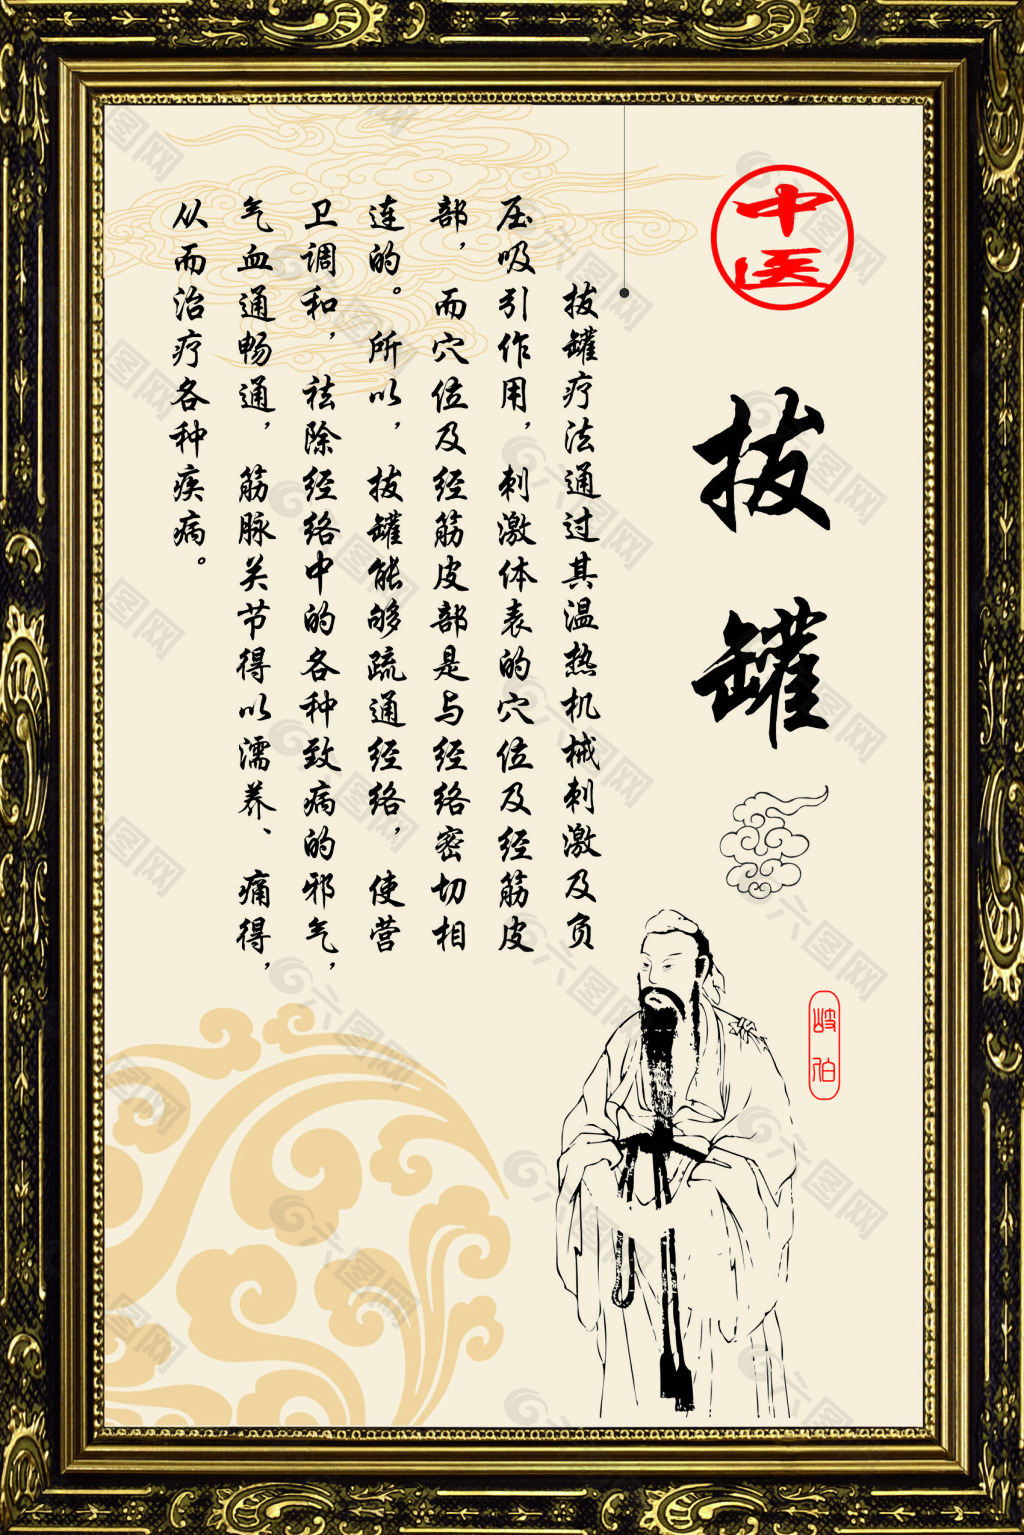 中医
拔罐
岐伯
拔罐疗法通过其温热机械刺激及负
压吸引作用，刺激体表的穴位及经筋皮
部，而穴位及经筋皮部是与经络密切相
连的。所以，拔罐能够疏通经络，使营
卫调和，祛除经络中的各种致病的邪气，
气血通畅通，筋脉关节得以濡养、痛得，
从而治疗各种疾病。
六图网